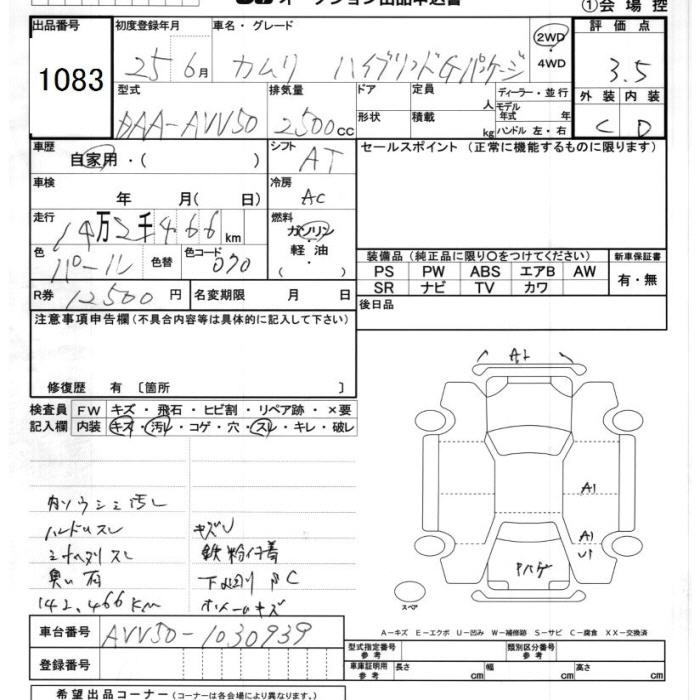 オークション出品申込書
①会場控
出品番号
1083
初度登録年月
25年6月
車名・グレード
カムリ ハイブリッドGパッケージ
2WD
・
4WD
評価点
3.5
外装 内装
C D
型式
DAA-AVV50
排気量
2500cc
ドア
形状
定員 人
積載 kg
ディーラー・並行
モデル年式 年
ハンドル 左・右
車歴
自家用・( )
シフト
AT
セールスポイント (正常に機能するものに限ります)
車検
年 月( 日)
冷房
AC
走行
14万2千466km
燃料
ガソリン
軽・油
( )
色
パール
色替
色コード
070
装備品 (純正品に限り○をつけてください)
PS PW ABS エアB AW
SR ナビ TV カワ
新車保証書
有・無
R券 12500円
名変期限 月 日
後日品
注意事項申告欄(不具合内容等は具体的に記入して下さい)
修復歴 有 〔箇所 〕
検査員記入欄
FW キズ・飛石・ヒビ割・リペア跡・×要
内装 キズ・汚レ・コゲ・穴・スレ・キレ・破レ
ハンドルスレ
キズU
鉄粉付着
臭い有
142,466KM
A1
A1
A1
U1
スペア
A-キズ E-エクボ U-凹み W-補修跡 S-サビ C-腐食 XX-交換済
車台番号 AVV50-1030939
登録番号
型式指定番号
参考
類別区分番号
参考
車庫証明用
参考
長さ cm
幅 cm
高さ cm
希望出品コーナー(コーナーは各会場により異なります。)